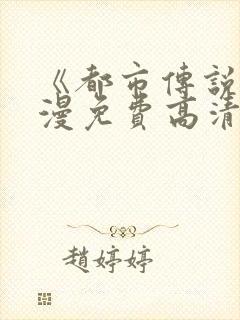 《都市傳說
漫免費高清
趙婷婷